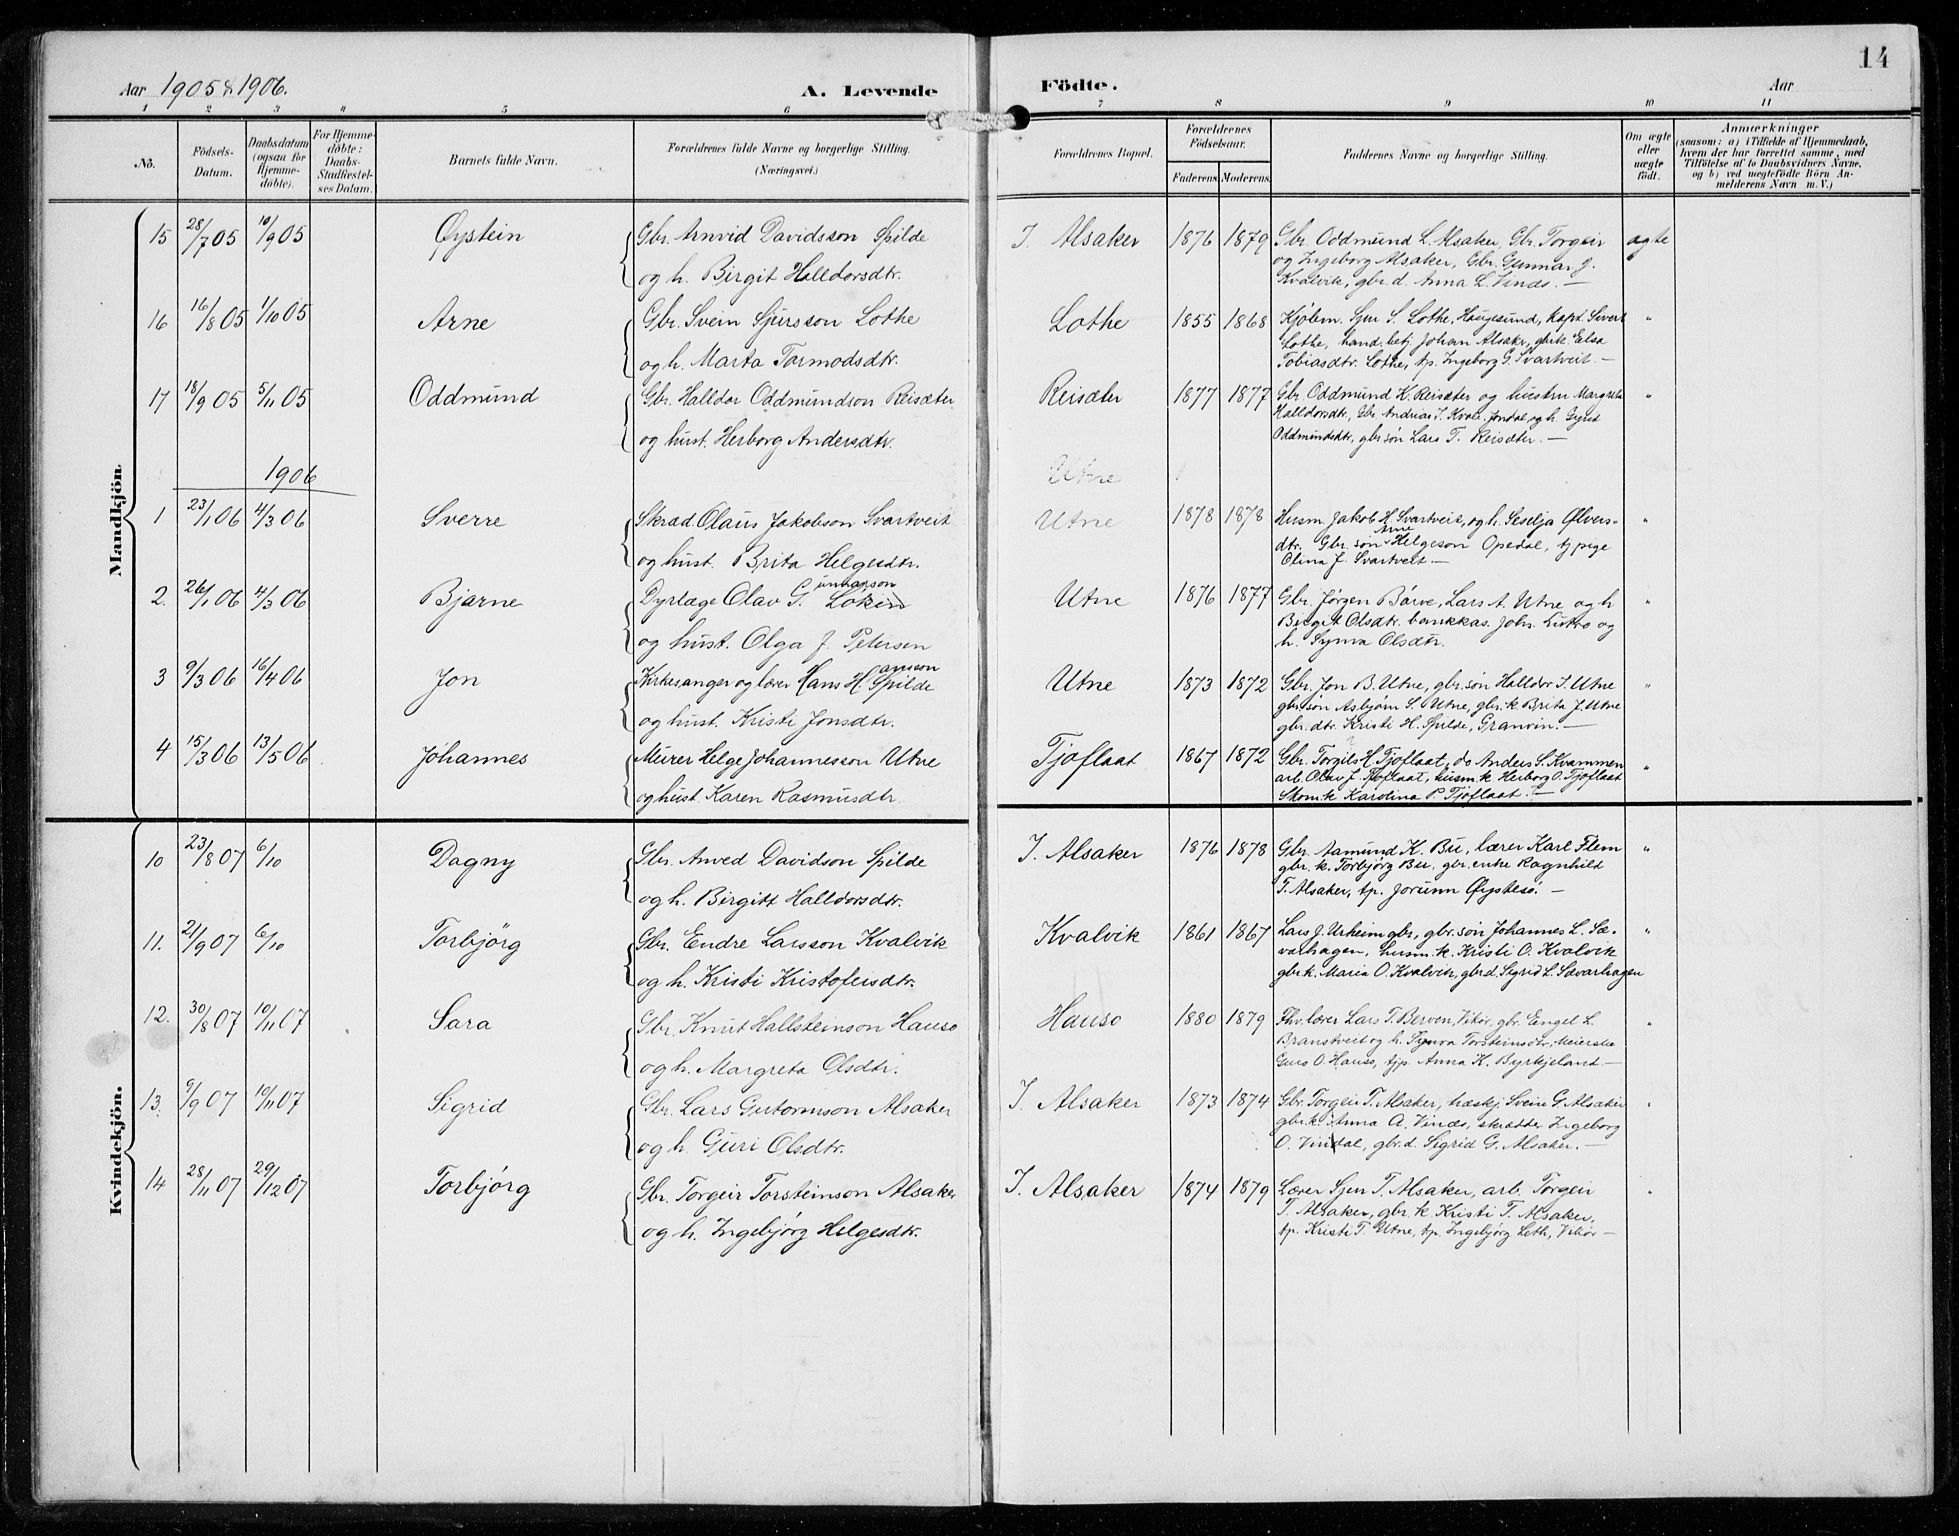 14
Aar 1905 & 1906. A. Levende Födte. Aar
1 2 3 4 5 6 7 8 9 10 11
No. Födsels-Datum. Daabsdatum (ogsaa for Hjemme-döbte). For Hjemme-döbte: Daabs-Stadfæstel-ses Datum. Barnets fulde Navn. Forældrenes fulde Navne og borgerlige Stilling. (Næringsvei.) Forældrenes Bopæl. Forældrenes Födselsaar. Faderens. Moderens. Faddernes Navne og borgerlige Stilling. Om ægte eller uægte födt. Anmærkninger
(saasom: a) i Tilfælde af Hjemmedaab, hvem der har forrettet samme, med Tilföielse af to Daabsvidners Navne, og b) ved uægtefödte Börn Anmelderens Navn m. V.)
Mandkjön.
15 28/7 05 10/9 05 Øystein Gbr. Arnvid Davidsson Spilde I. Alsaker 1876 1879 Gbr. Oddmund L. Alsaker, Gbr. Torgeir ægte
og h. Birgit Halldorsdtr. og Ingeborg Alsaker, Gbr. Gunnar J.
Kvalvik, gbr.d. Anna L. Vinæs. —
16 16/8 05 1/10 05 Arne Gbr. Svein Sjursson Lothe Lothe 1855 1868 Kjøbm. Sjur S. Lothe, Haugesund, kapt. Sivert "
og h. Marta Tormodsdtr. Lothe, hand.betj. Johan Alsaker, gbr.k. Elsa
Tobiasdtr. Lothe, tp. Ingeborg G. Svartveit —
17 18/9 05 5/11 05 Oddmund Gbr. Halldor Oddmundson Reisæter Reisæter 1877 1877 Gbr. Oddmund K. Reisæter og hustru Margreta "
og hust. Herborg Andersdtr. Halldorsdtr, Gbr. Andreas I. Kvale, Jondal og h. Gyrid
Oddmundsdtr, gbr.søn Lars T. Reisæter. —
1906 Utne
1 23/1 06 4/3 06 Sverre Skræd. Olaus Jakobson Svartveit Utne 1878 1878 Husm. Jakob H. Svartveit, og h. Seselja Ølvers- "
og hust. Brita Helgesdtr. dtr. Gbr. søn Arne Helgeson Opedal, tj. pige
Olina J. Svartveit. —
2. 26/1 06 4/3 06 Bjarne Dyrlæge Olav Gunnarson Lokin Utne 1876 1877 Gbr. Jørgen Børve, Lars A. Utne og h "
og hust. Olga J. Petersen Birgit Olsdtr. bankkas. Joh. Lutro og
h. Synva Olsdtr.
3 9/3 06 16/4 06 Jon Kirkesanger og lærer Hans Hansson Spilde Utne 1873 1872 Gbr. Jon B. Utne, gbr. søn Halldor I. Utne "
og hust. Kristi Jonsdtr. gbr. søn Asbjørn S. Utne, gbr. k Brita J. Utne
gbr. dtr. Kristi H. Spilde, Granvin. —
4 15/3 06 13/5 06 Johannes Murer Helge Johannesson Utne Tjoflaat 1867 1872 Gbr. Torgils H Tjoflaat, do Anders S. Kvammen "
og hust. Karen Rasmusdtr. arb. Olav J. Tjoflaat, husm.k Herborg O. Tjoflaat
Skom.k Karolina P. Tjoflaat. —
Kvindekjön.
10 23/8 07 6/10 Dagny Gbr. Anved Davidson Spilde I. Alsaker 1876 1878 Gbr. Aamund K. Bu, lærer Karl Flem "
og h. Birgit Halldorsdtr. gbr. k. Torbjørg Bu, gbr. enke Ragnhild
T. Alsaker, tp. Jorunn Øystesö. —
11. 21/9 07 6/10 Torbjörg Gbr. Endre Larsson Kvalvik Kvalvik 1861 1867 Lars J. Urheim gbr, gbr. søn Johannes L. Sæ- "
og h. Kristi Kristofersdtr. værhagen, husm. k. Kristi O. Kvalvik
gbr.k. Maria O. Kvalvik, gbr.d. Sigrid L. Sæværhagen
12. 30/8 07 10/11 07 Sara Gbr. Knut Hallsteinson Hauso Hauso 1880 1879 Fhv. lærer Lars T. Berven, Vikør, gbr. Engel L. "
og h. Margreta Olsdtr. Branstveit og h. Synva Torsteinsdtr, Meierske
Guro O. Hauso, tjp. Anna K. Byrkjeland —
13. 9/9 07 10/11 07 Sigrid Gbr. Lars Gutormson Alsaker I. Alsaker 1873 1874 Gbr. Torgeir T. Alsaker, træskj. Svein G. Alsaker "
og h. Guri Olsdtr. gbr.k. Anna A. Vinæs, skrædder Ingeborg
O. Vindal, gbr.d. Sigrid G. Alsaker. —
14 28/11 07 29/12 07 Torbjørg Gbr. Torgeir Torsteinson Alsaker I. Alsaker 1874 1879 Lærer Sjur T. Alsaker, arb. Torgeir "
og h. Ingebjørg Helgesdtr. T. Alsaker, gbr. k Kristi T. Alsaker,
tp. Kristi T. Utne, tp. Ingebjørg Leth, Vikør —